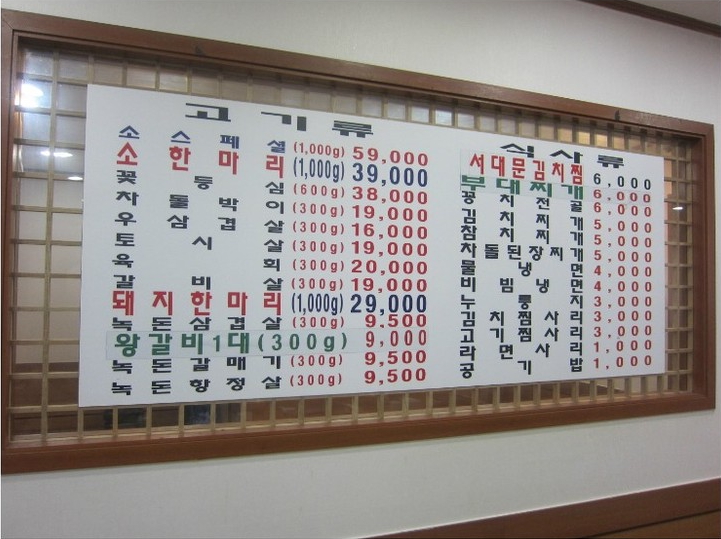 고기류
소스페셜 (1,000g) 59,000
소한마리 (1,000g) 39,000
꽃등심 (600g) 38,000
차돌박이 (300g) 19,000
우삼겹살 (300g) 16,000
토시살 (300g) 19,000
육회 (300g) 20,000
갈비살 (300g) 19,000
돼지한마리 (1,000g) 29,000
녹돈삼겹살 (300g) 9,500
왕갈비1대(300g) 9,000
녹돈갈매기 (300g) 9,500
녹돈항정살 (300g) 9,500
식사류
서대문김치찜 6,000
부대찌개 6,000
꽁치전골 6,000
김치찌개 5,000
참치찌개 5,000
차돌된장찌개 5,000
물냉면 4,000
비빔냉면 4,000
누룽지 3,000
김치찜사리 3,000
고기찜사리 3,000
라면사리 1,000
공기밥 1,000